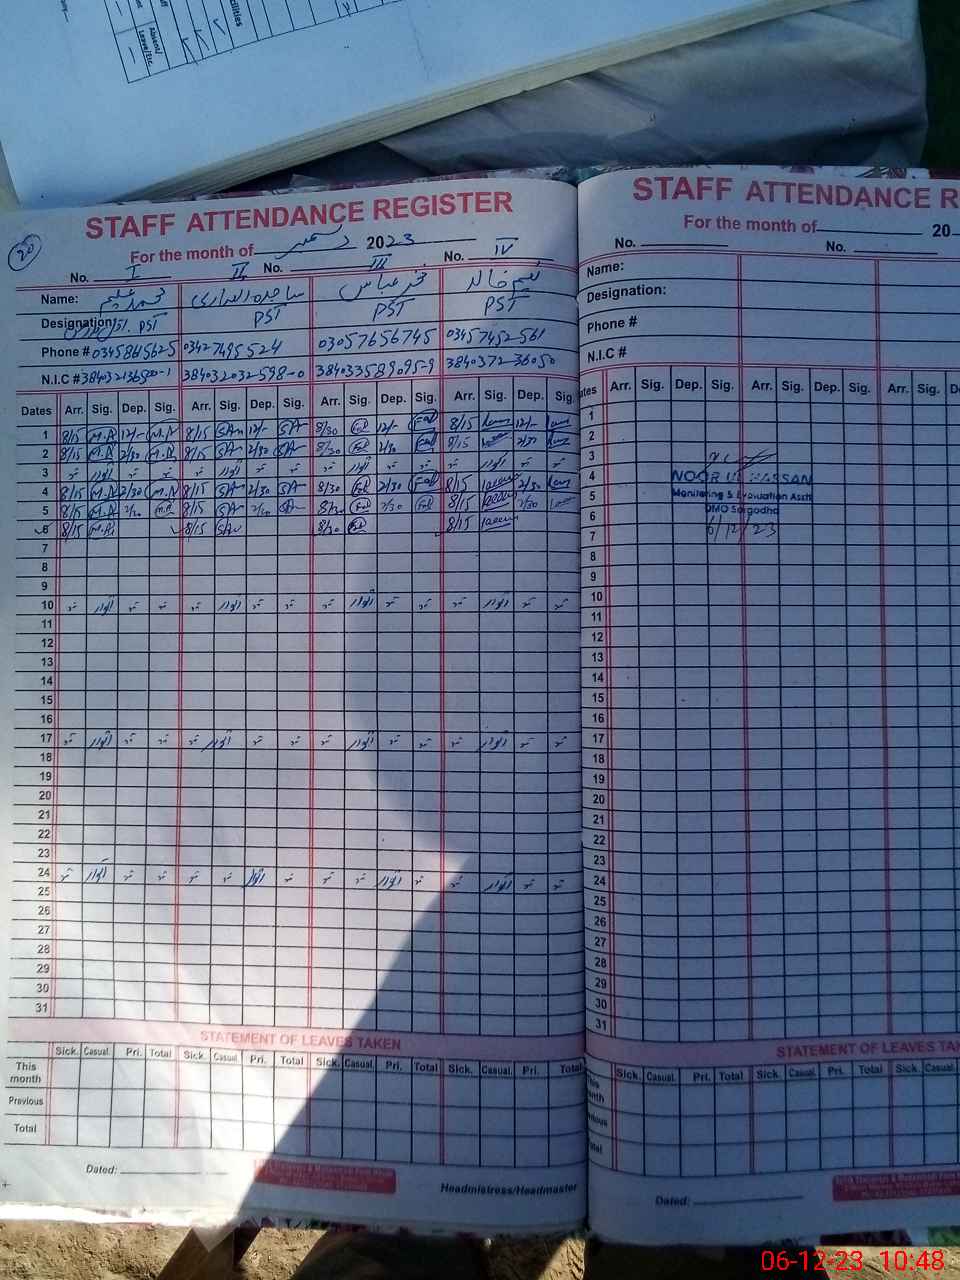 Absent/
Leave/Etc.
STAFF ATTENDANCE REGISTER
20
For the month of دسمبر 2023
No. I II No. III No. IV
Name: محمد سلیم ساجدہ فخر عباس نسیم خالد
Designation: PST PST PST PST
Phone # 0345865625 03427495524 03057656745 03457452561
N.I.C # 384032032598-0 384033589095-9
Dates Arr. Sig. Dep. Sig. Arr. Sig. Dep. Sig. Arr. Sig. Dep. Sig. Arr. Sig. Dep. Sig.
1 8/15 M.A 12/- M.A 8/15 SA 12/- SA 8/30 12/- 8/15 12/-
2 8/15 M.A 2/30 M.A 8/15 SA 2/30 SA 8/30 2/30 8/15 2/30
3 اتوار اتوار اتوار اتوار
4 8/15 M.A 2/30 M.A 8/15 SA 2/30 SA 8/30 2/30 8/15 2/30
5 8/15 M.A 2/30 M.A 8/15 SA 2/30 SA 8/30 2/30 8/15 2/30
6 8/15 M.A 8/15 SA 8/30 8/15
7
8
9
10 اتوار اتوار اتوار اتوار
11
12
13
14
15
16
17 اتوار اتوار اتوار اتوار
18
19
20
21
22
23
24 اتوار اتوار اتوار اتوار
25
26
27
28
29
30
31
STATEMENT OF LEAVES TAKEN
Sick. Casual. Pri. Total Sick. Casual. Pri. Total Sick. Casual. Pri. Total Sick. Casual. Pri. Total
This
month
Previous
Total
Dated:
Headmistress/Headmaster
STAFF ATTENDANCE R
For the month of 20
No. No.
Name:
Designation:
Phone #
N.I.C #
ates Arr. Sig. Dep. Sig. Arr. Sig. Dep. Sig. Arr. Sig. De
1
2
3
4
5
6
7
8
9
10
11
12
13
14
15
16
17
18
19
20
21
22
23
24
25
26
27
28
29
30
31
NOOR UL HASSAN
Monitoring & Evaluation Asstt
DMO Sargodha
6/12/23
STATEMENT OF LEAVES TA
Sick. Casual. Pri. Total Sick. Casual. Pri. Total Sick. Casual
Dated:
06-12-23 10:48